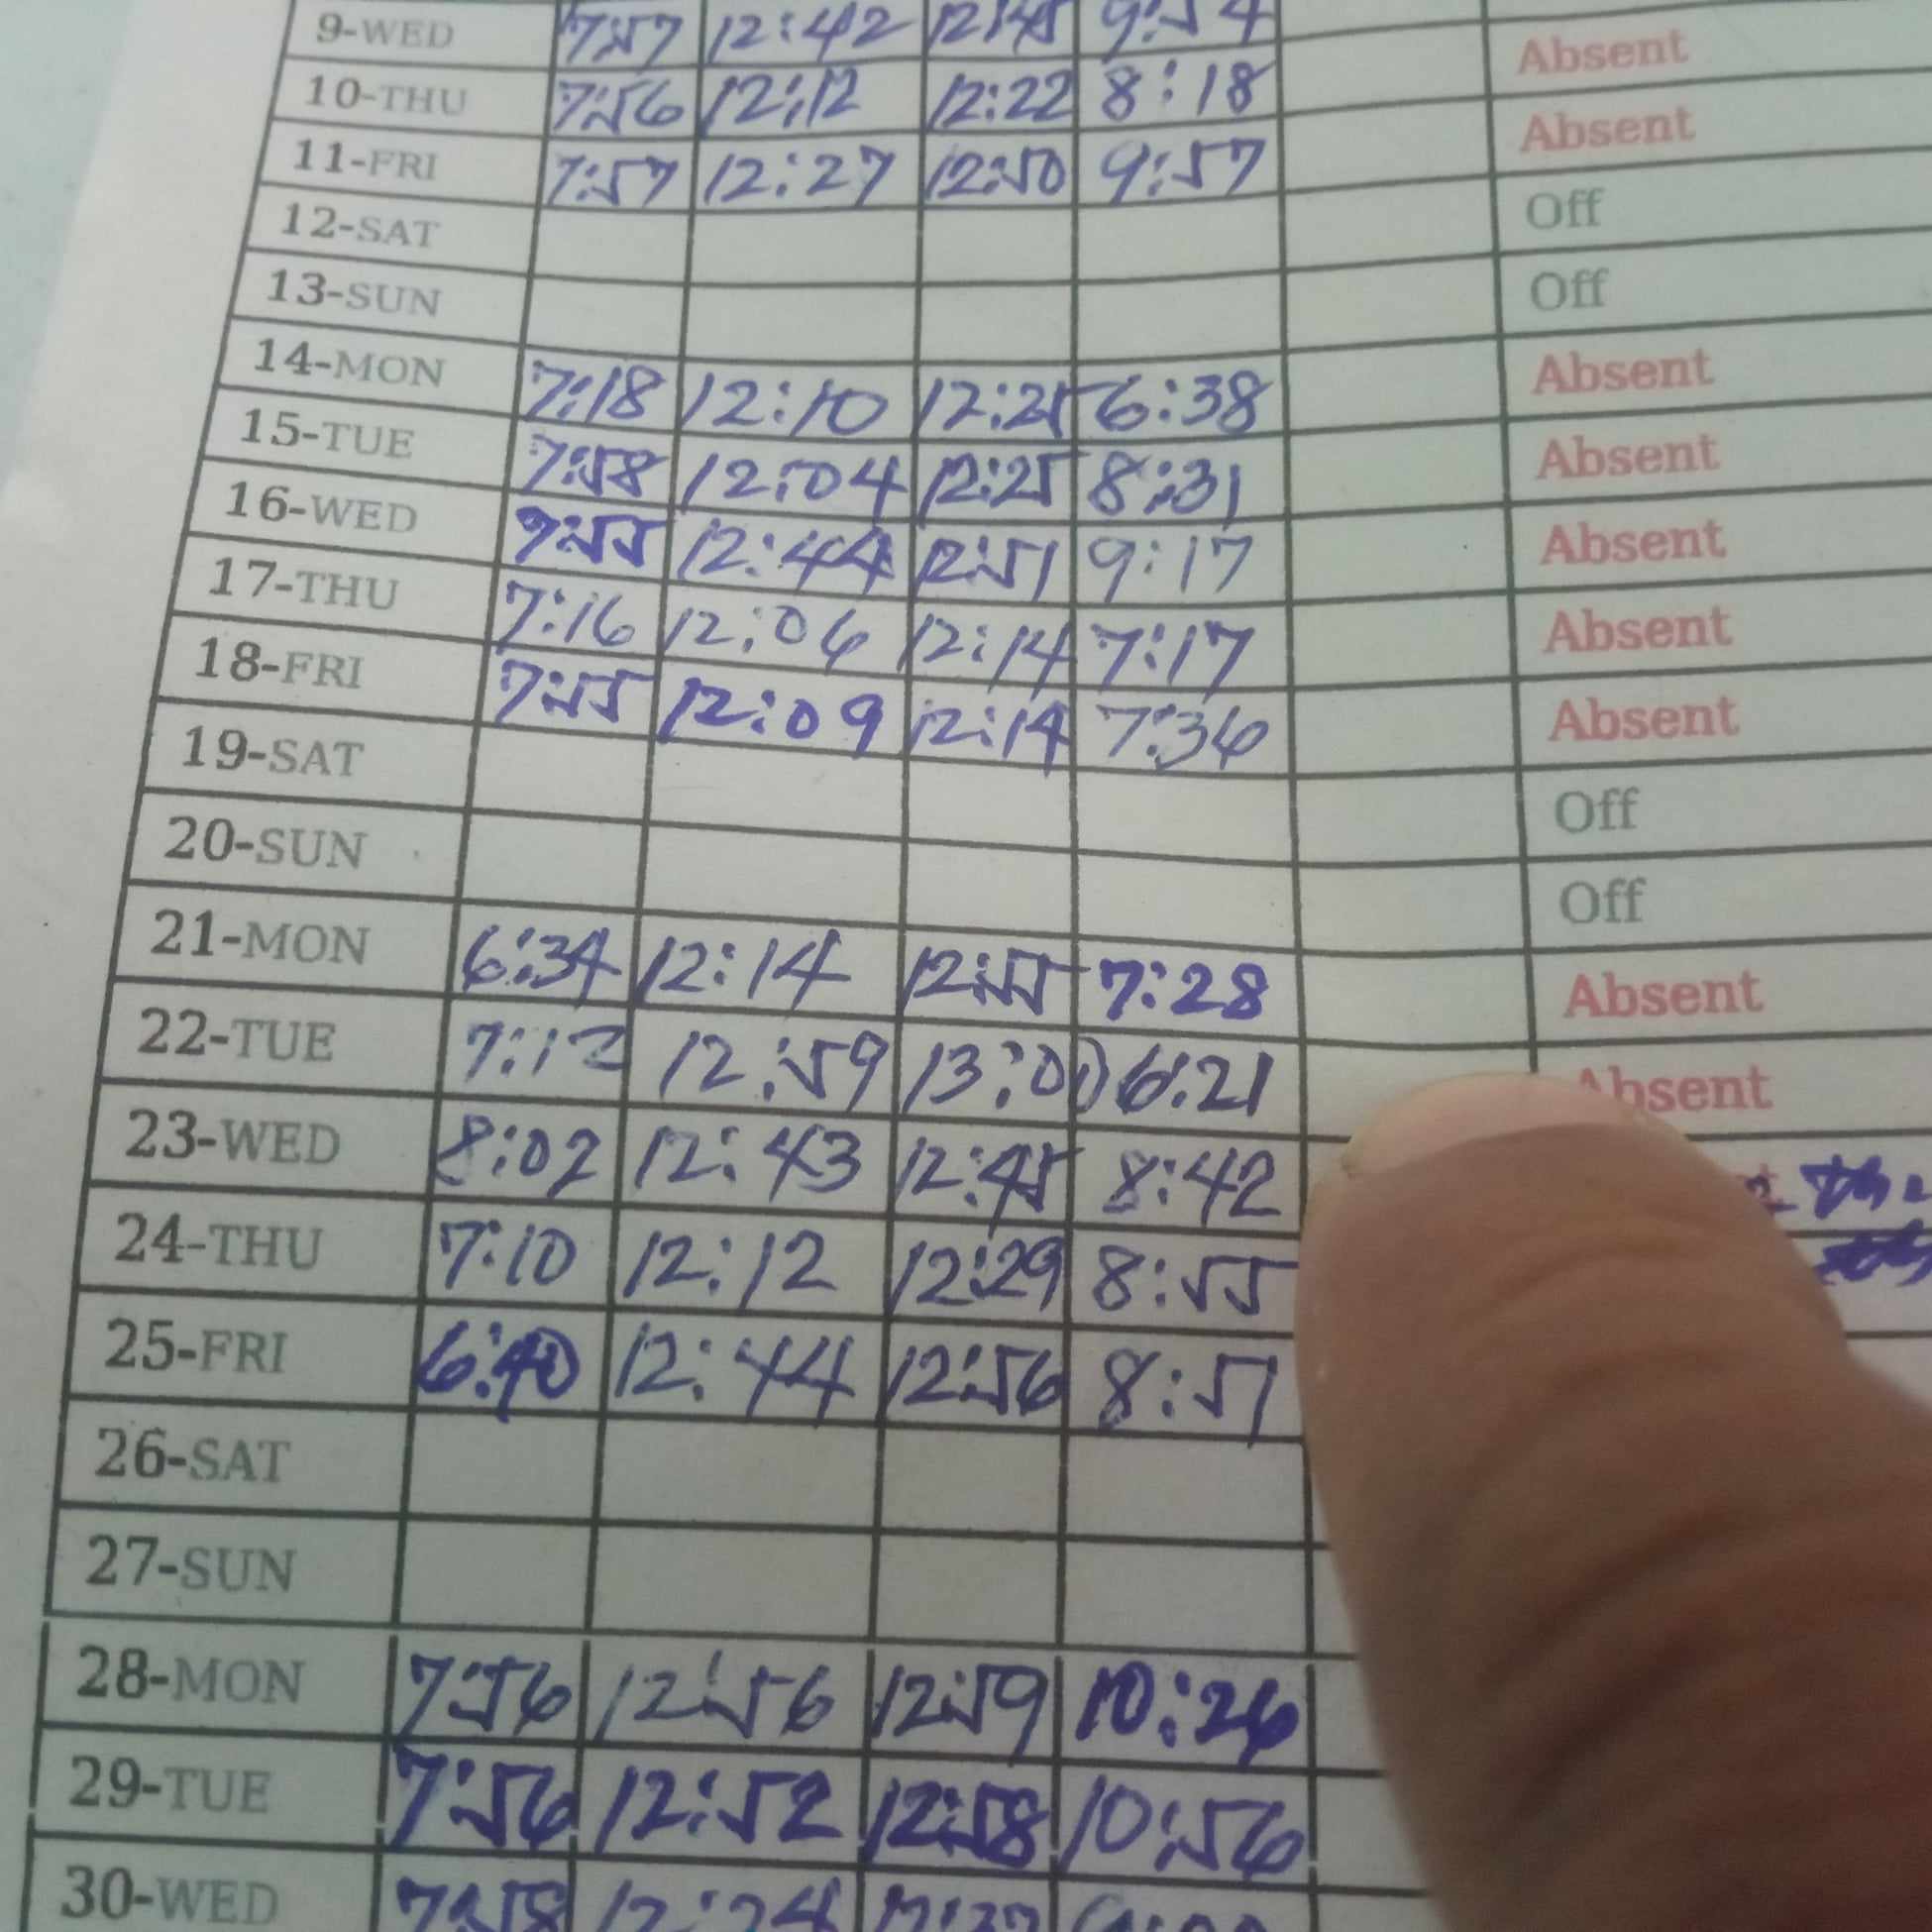 9-WED 7:57 12:42 12:45 9:54 Absent
10-THU 7:56 12:12 12:22 8:18 Absent
11-FRI 7:57 12:27 12:50 9:57 Off
12-SAT Off
13-SUN Absent
14-MON 7:18 12:10 12:25 6:38 Absent
15-TUE 7:58 12:04 12:25 8:31 Absent
16-WED 7:55 12:44 12:51 9:17 Absent
17-THU 7:16 12:06 12:14 7:17 Absent
18-FRI 7:55 12:09 12:14 7:36 Off
19-SAT Off
20-SUN
21-MON 6:34 12:14 12:55 7:28 Absent
22-TUE 7:12 12:59 13:00 6:21 Absent
23-WED 8:02 12:43 12:45 8:42
24-THU 7:10 12:12 12:29 8:55
25-FRI 6:40 12:44 12:56 8:51
26-SAT
27-SUN
28-MON 7:56 12:56 12:59 10:26
29-TUE 7:56 12:52 12:58 10:56
30-WED 7:58